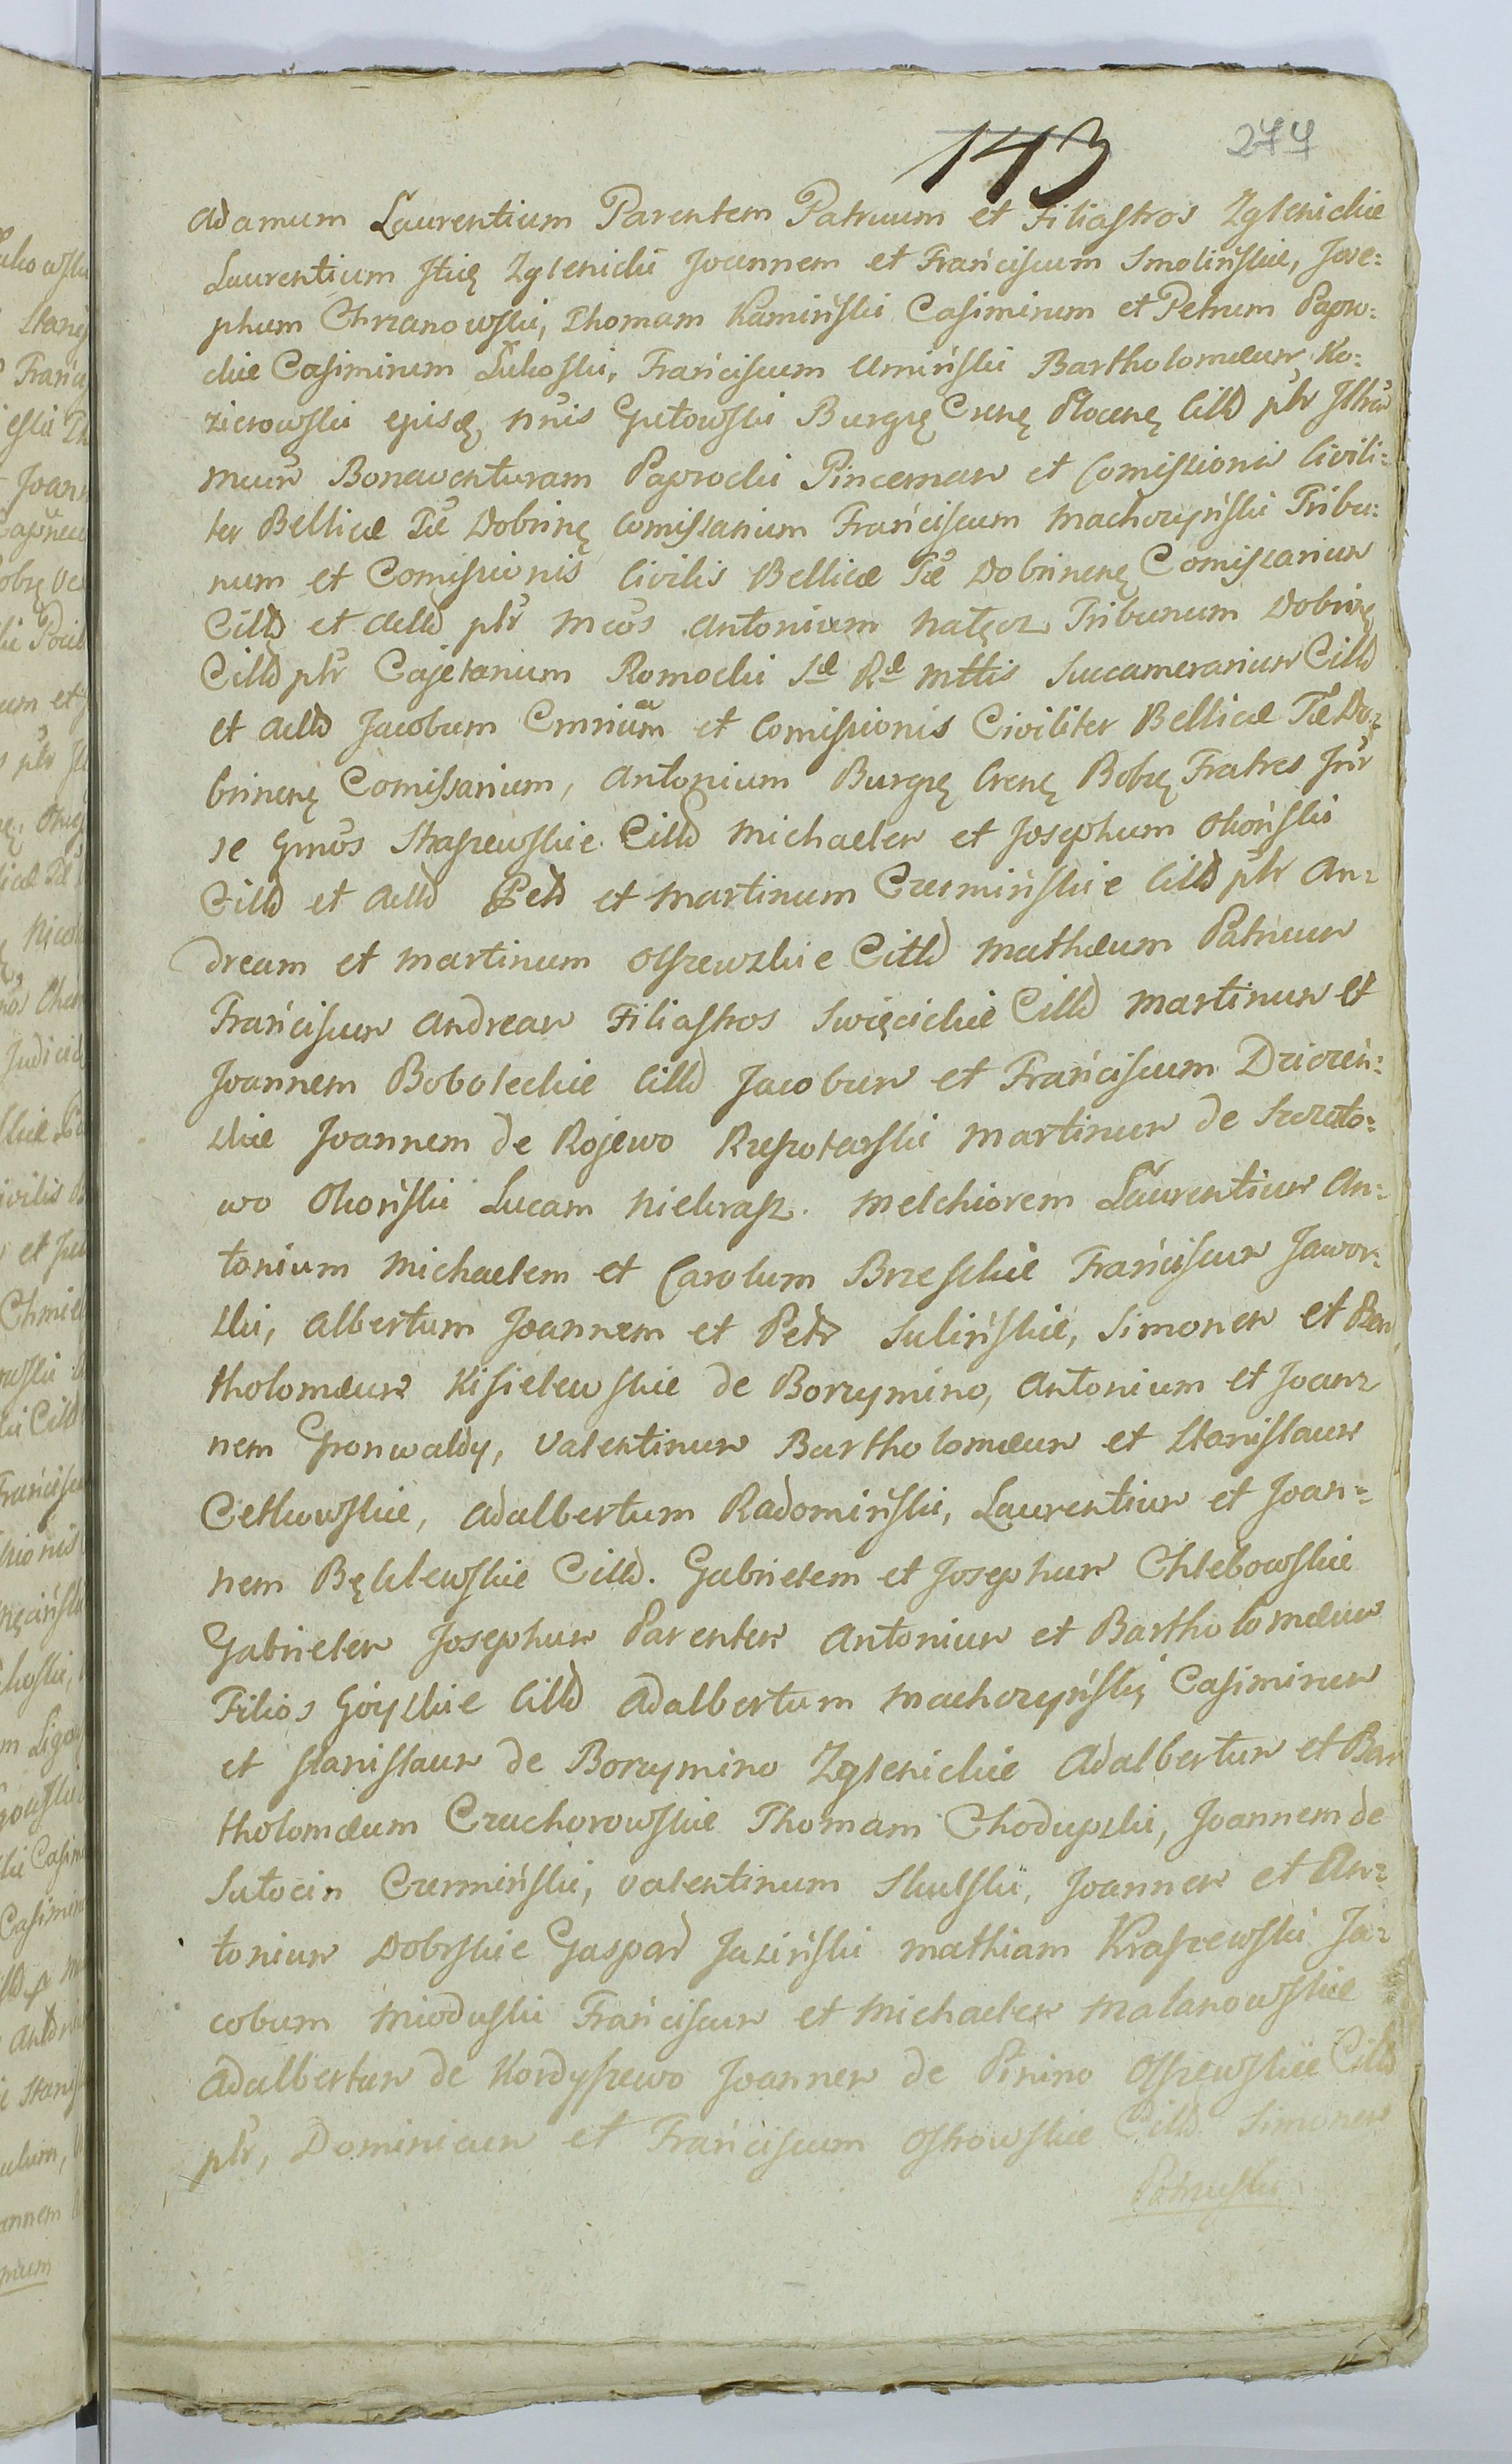 143 274
Adamum Laurentium Parentem Patruum et Filiastros Zglenickie
Laurentium Itię Zglenicki Joannem et Franciscum Smolińskie, Jose=
phum Chrzanowski, Thomam Kamiński Casimirum et Petrum Papro=
ckie Casimirum Łukoski, Franciscum Umiński Bartholomæum Ko=
zierowski episæ, nnis Gutowski Burgrę Crenę Plocenę Cilld plr
mcum Bonaventuram Paprocki Pincernam et Comissionis Civili=
ter Bellicæ Tæ Dobrinę Comissarium Franciscum Machczyński Tribu=
num et Comissionis Civilis Bellicæ Tæ Dobrinenę Comissarium
Cilld et Aelld plr mcos Antonium Nałęcz Tribunum Dobrinę
Cilld plr Cajetanum Romocki Sæ Ræ Mttis Succamerarium Cilld
et Aelld Jacobum Cmrium et Comissionis Civiliter Bellicæ Tæ Do=
brinenę Comissarium, Antonium Burgrę Crenę Bobrę Fratres Inr
se gmos Straszewskie Cilld Michaelem et Josephum Okoński
Cilld et Aelld Petr et Martinum Czermińskie Cilld plr An=
dream et Martinum Olszewskie Cilld Mathæum Patruum
Franciscum Andream Filiastros Swięcickie Cilld Martinum et
Joannem Boboleckie Cilld Jacobum et Franciscum Dziczeń=
skie Joannem de Rojewo Rzeszotarski Martinum de
wo Okoński Lucam Niekrasz. Melchiorem Laurentium An=
tonium Michaelem et Carolum Brzeskie Franciscum Jawor=
ski, Albertum Joannem et Petr Sulińskie, Simonem et Bar
tholomæum Kisielewskie de Borzymino, Antonium et Joan=
nem Gronwaldy, Valentinum Bartholomæum et Stanislaum
Cetkowskie, Adalbertum Radomiński, Laurentium et Joan=
nem Bęklewskie Cilld. Gabrielem et Josephum Chlebowskie
Gabrielem Josephum Parentem Antonium et Bartholomæum
Filios Góyskie Cilld Adalbertum Machczyński Casimirum
et Stanislaum de Borzymino Zglenickie Adalbertum et Bar
tholomæum Czachorowskie Thomam Chodupski, Joannem de
Sutocin Czermiński, Valentinum Skulski, Joannem et An=
tonium Dobrskie Gaspar Jasiński Mathiam Kraszewski Ja=
cobum Mioduski Franciscum et Michaelem Malanowskie
Adalbertum de Kordyszewo Joannem de Pinino Olszewskie Cilld
plr, Dominicum et Franciscum Ostrowskie Cilld Simonem
Potruski